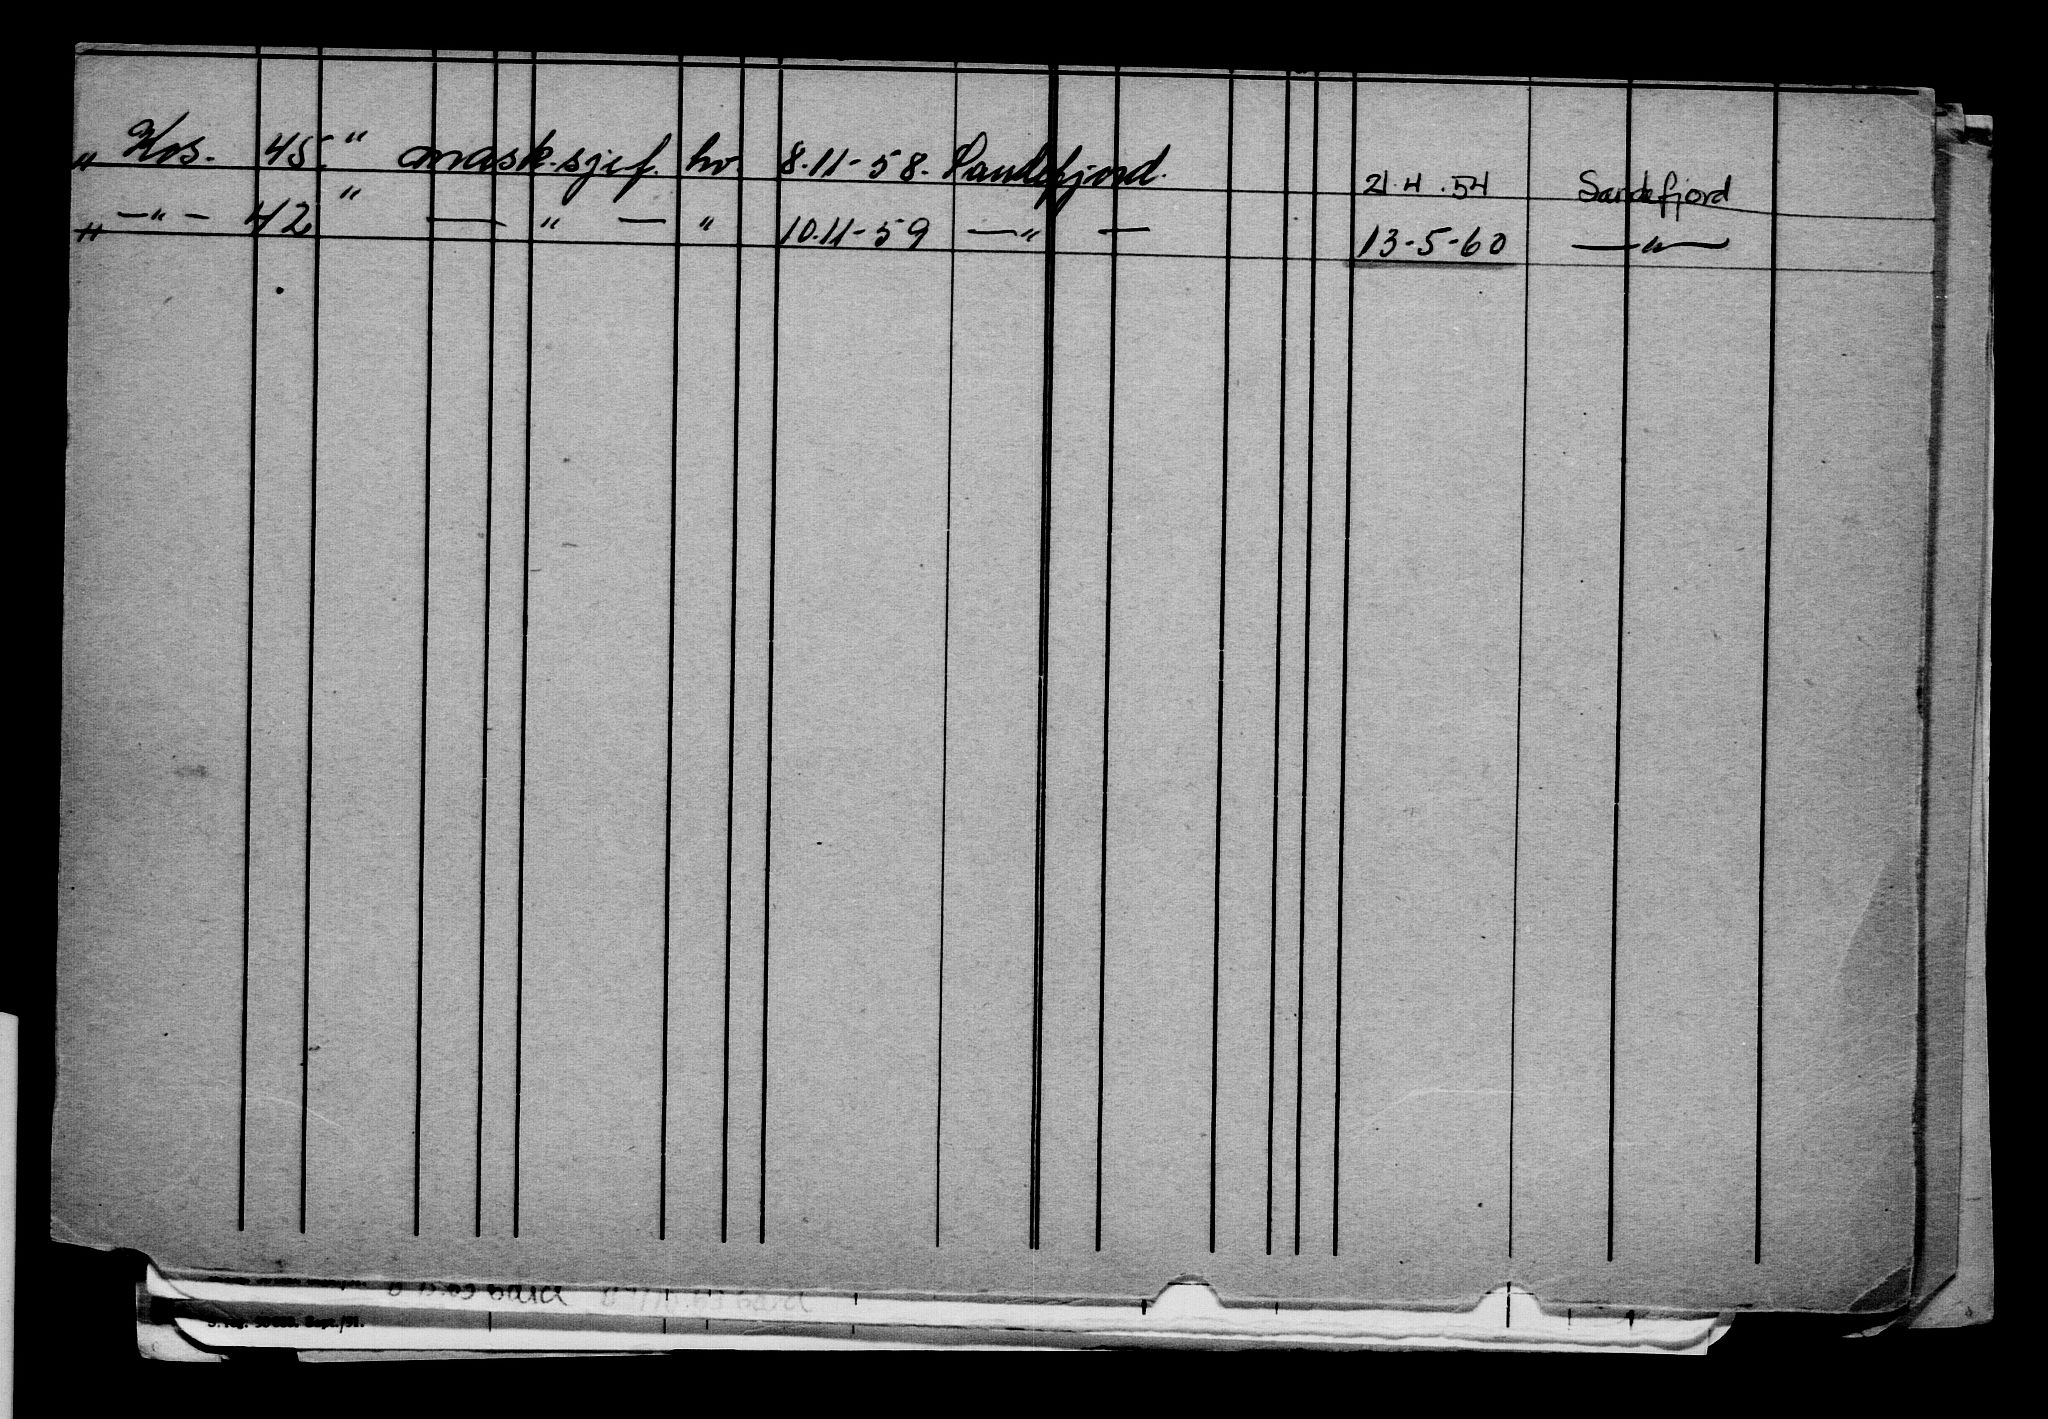 " Kos. 45. " mask.sjef. hv. 8.11-58. Sandefjord. 21.4.54 Sandefjord
" —"— 42 " — " — " 10.11-59 —" — 13-5-60 —"—